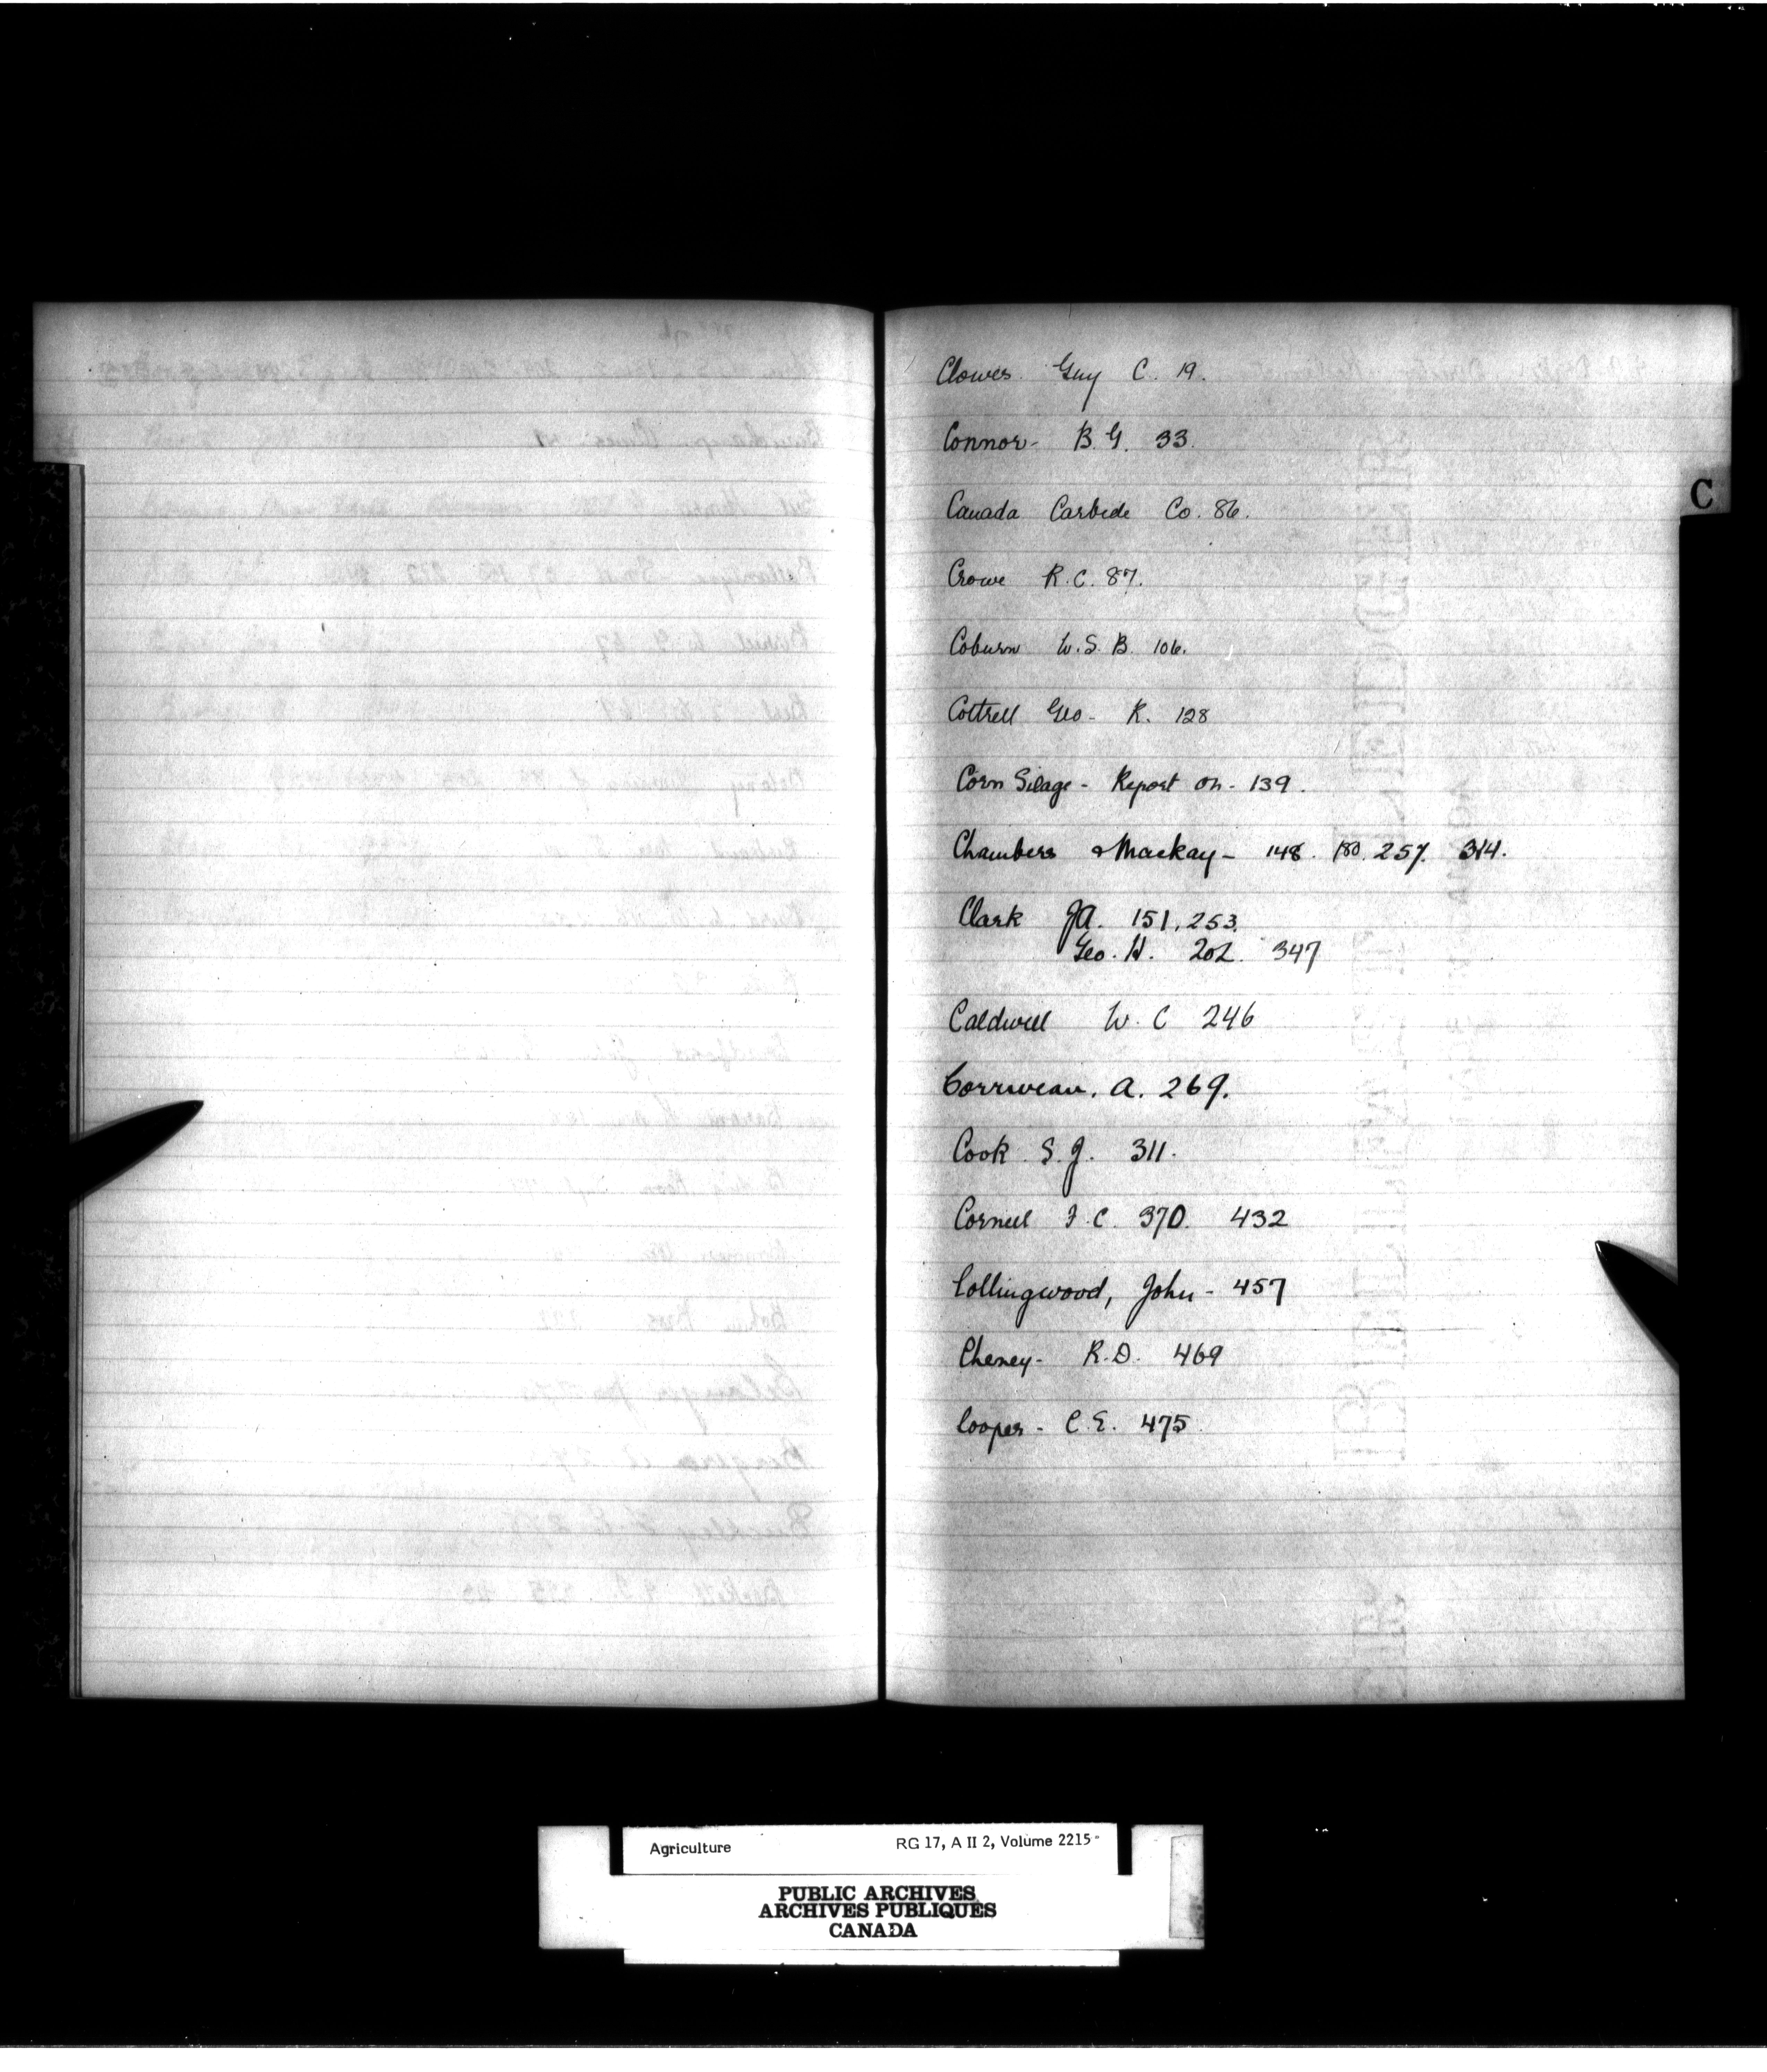 Clowes. Guy C. 19.
Connor- B.G. 33.
C
Canada Carbide Co. 86.
Crowe R.C. 87.
Coburn W.S.B. 106.
Cottrell Geo- R. 128
Corn Silage - Report on - 139.
Chambers & Mackay - 148. 180. 257. 314.
Clark JA. 151, 253.
Geo. H. 202. 347
Caldwell W. C 246
Corriveau. A. 269.
Cook S.J. 311.
Corneil F.C. 370. 432
Collingwood, John - 457
Cheney- R.D. 469
Cooper - C.E. 475
Agriculture RG 17, A II 2, Volume 2215
PUBLIC ARCHIVES
ARCHIVES PUBLIQUES
CANADA